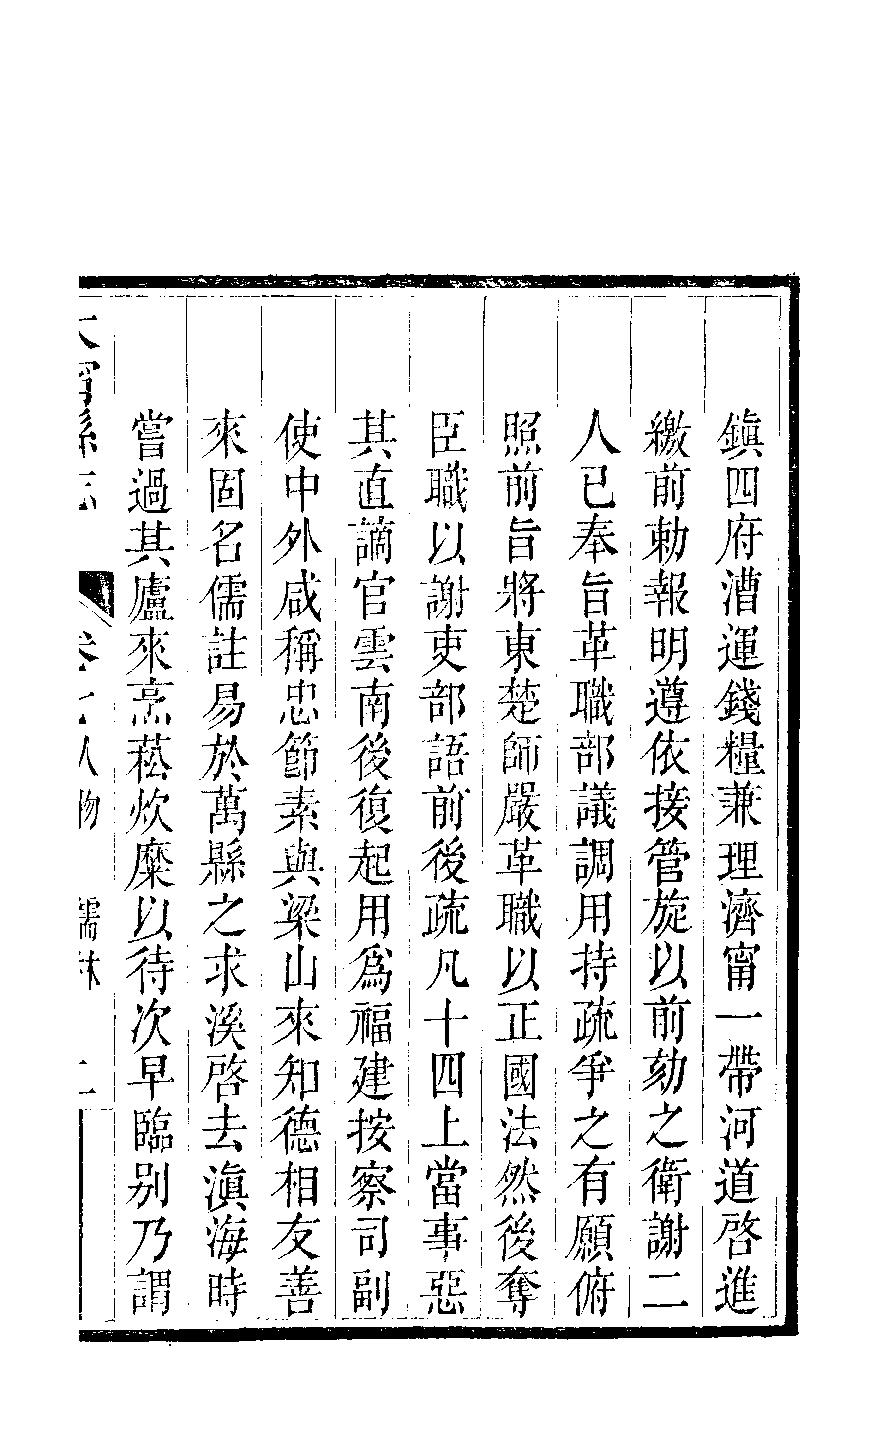 鎮四府漕運錢糧兼理濟甯一帶河道啓進
繳前勅報明遵依接管旋以前劾之衛謝二
人已奉旨革職部議調用持疏爭之有願俯
照前旨將東楚師嚴革職以正國法然後奪
臣職以謝吏部語前後疏凡十四上當事惡
其直謫官雲南後復起用為福建按察司副
使中外咸稱忠節素與梁山來知德相友善
來固名儒註易於萬縣之求溪啓去滇海時
嘗過其廬來烹菘炊糜以待次早臨别乃謂
大甯縣志 卷七人物 儒林 二